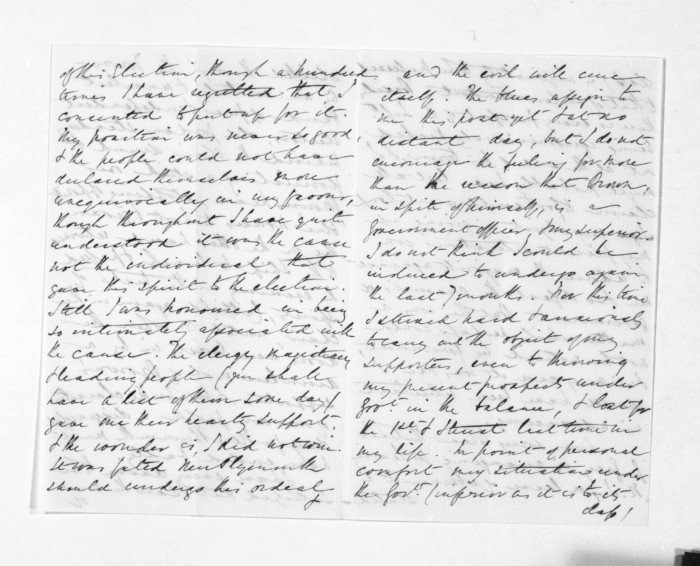 of this Election, though a hundred
times I have regretted that I
consented to put up for it.
My position was never so good,
& the people could not have
declared themselves more
unequivocally in my favour,
though throughout I have quite
understood it was the cause
not the individual that
gave this spirit to the election.
Still I was honoured in being
so intimately associated with
the cause. The clergy magistracy
& leading people (you shall
have a list of them some day)
gave me their hearty support,
& the wonder is, I did not win.
It was fated New Plymouth
should undergo this ordeal
and the evil will cure
itself. The blues assign to
me this post yet & at no
distant day, but I do not
encourage the feeling for more
than the reason that Brown,
in spite of himself, is a
Government officer, & my superior.
I do not think I could be
induced to undergo again
the last 7 months. For this time
I strived hard & anxiously
to carry out the object of my
supporters, even to throwing
my present prospects under
Govt. in the balance, & lost for
the 1st. & I trust last time in
my life. In point of personal
comfort my situation under
the Govt. (inferior as it is to its
class)